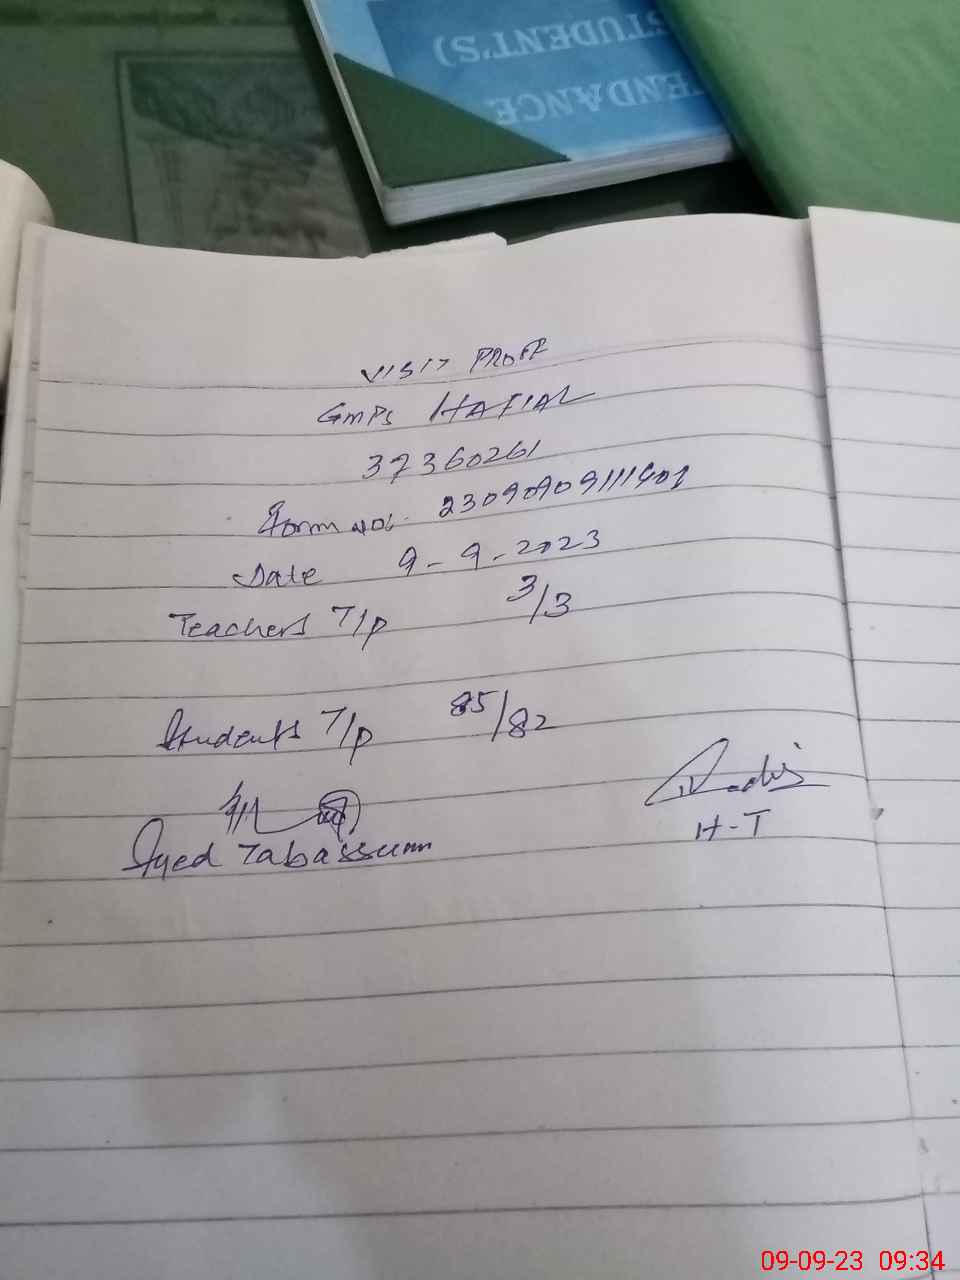 TENDANCE
STUDENT'S)
VISIT PROFF
GMPS HAFIAL
37360261
Form No:
Date 9-9-2023
Teachers T/P 3/3
Students T/P 85/82
Syed Tabassum
H-T
09-09-23 09:34